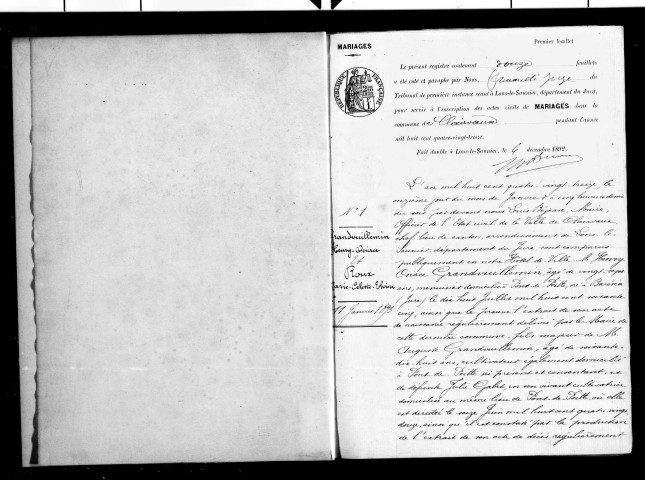 Premier feuillet
MARIAGES
Le présent registre contenant douze feuillets
a été coté et paraphé par Nous, juge du
Tribunal de première instance séant à Lons-le-Saunier, département du Jura,
pour servir à l'inscription des actes civils de MARIAGES dans la
commune de Clairvaux pendant l'année
mil huit cent quatre-vingt-treize.
Fait double à Lons-le-Saunier, le 6 décembre 1892.
RÉPUBLIQUE FRANÇAISE
N° 1
Grandvuillemin
Henry Osiace
et
Roux
Marie-Céleste-
11 Janvier 1893
L'an mil huit cent quatre-vingt-treize, le
onzième jour du mois de Janvier à cinq heures
du soir par devant nous Louis Maire
Officier de l'Etat civil de la Ville de Clairvaux
chef lieu de canton, arrondissement de Lons le
Saunier, département du Jura, sont comparus
publiquement en notre Hôtel de Ville M. Henry
Osiace Grandvuillemin, âgé de vingt sept
ans, domicilié à Pont de Poitte, né à
(Jura) le dix huit Juillet mil huit cent soixante
cinq, ainsi que le prouve l'extrait de son acte
de naissance régulièrement délivré par le Maire de
cette dernière commune, fils majeur de M.
August Grandvuillemin, âgé de soixante
dix-huit ans, cultivateur également domicilié
à Pont de Poitte ici présent et consentant, et
de défunte Julie en son vivant cultivatrice
domiciliée au même lieu de Pont de Poitte où elle
est décédée le seize Juin mil huit cent quatre vingt
douze, ainsi qu'il est constaté par la production
de l'extrait de son acte de décès régulièrement